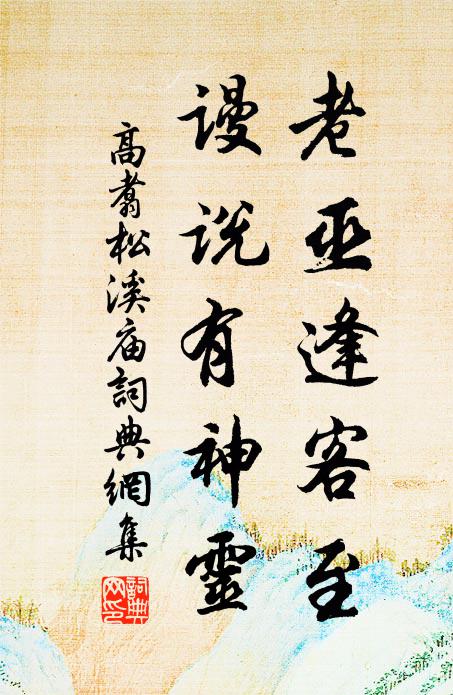 老巫逢客至
谩说有神靈
高翥松溪庙詞典網集
詞典